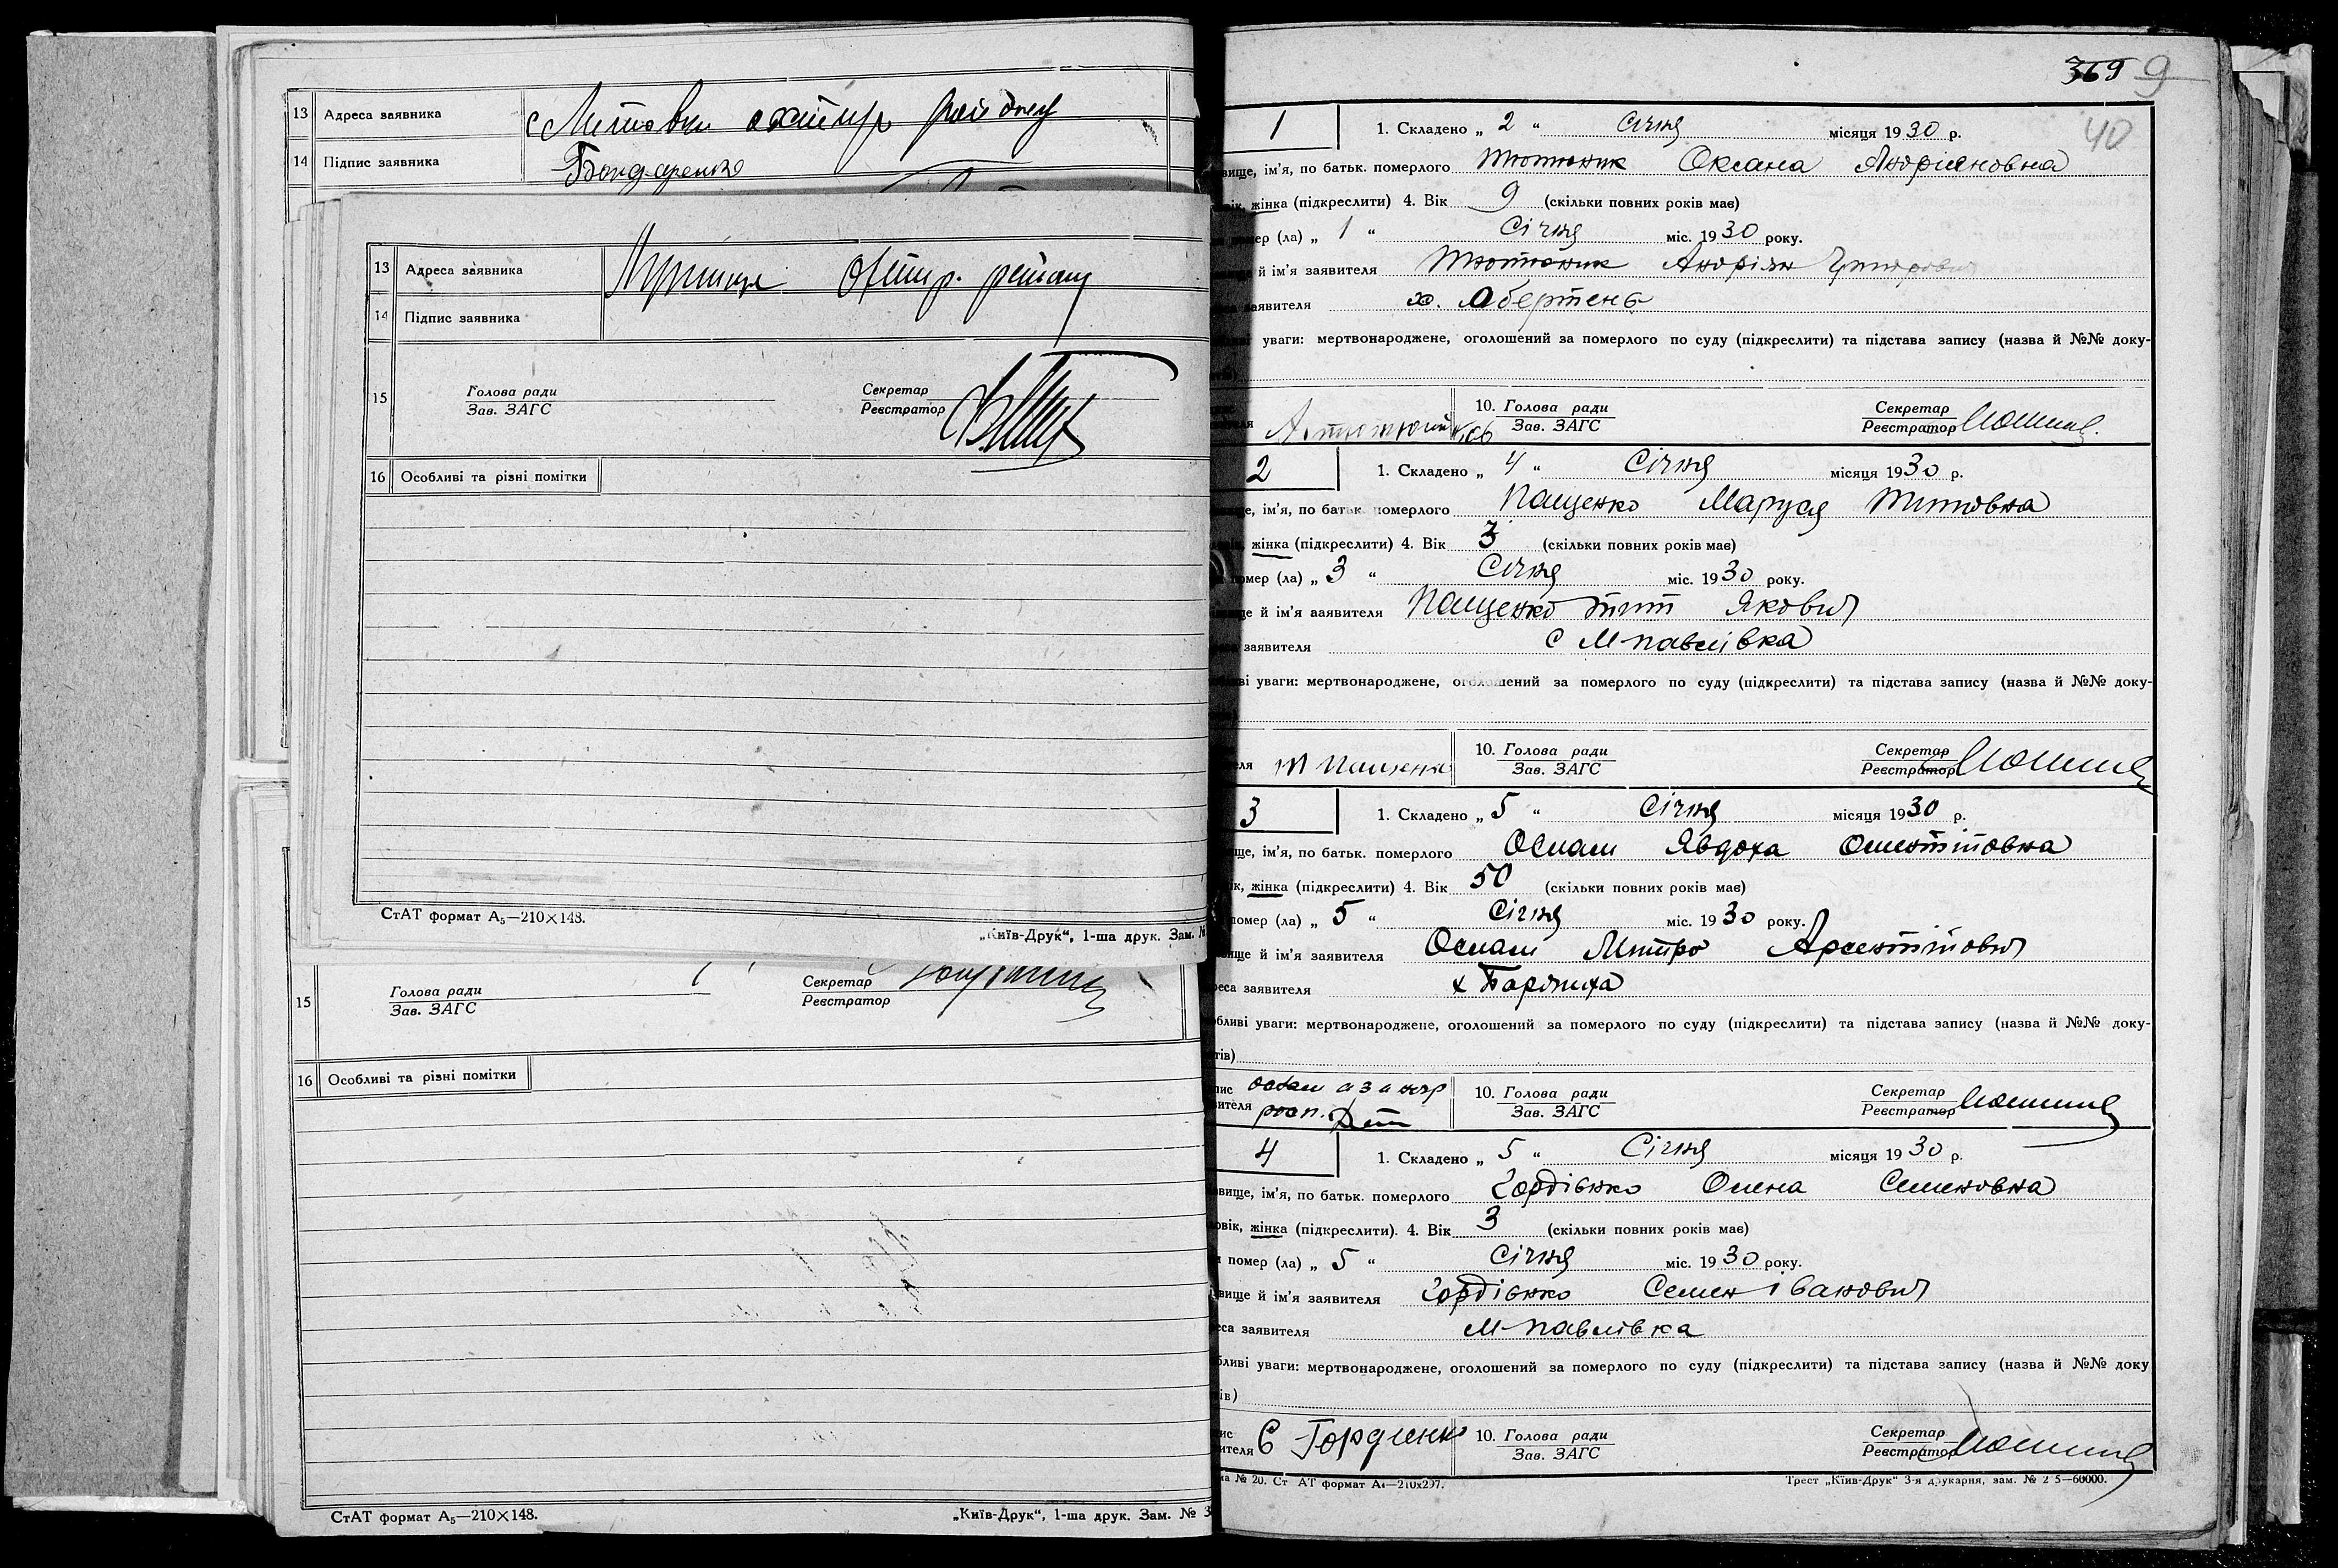 13 Адреса заявника с Литовки охтир району
14 Підпис заявника Бондаренко
13 Адреса заявника Охтир. району
14 Підпис заявника
15 Голова ради Секретар
Зав. ЗАГС Реєстратор
16 Особливі та різні помітки
СтАТ формат А₅—210×148.
„Київ-Друк“, 1-ша друк. Зам. №
15 Голова ради Секретар
Зав. ЗАГС Реєстратор
16 Особливі та різні помітки
СтАТ формат А₅—210×148.
„Київ-Друк“, 1-ша друк. Зам. № 3
369 9
40
1 1. Складено „ 2 “ Січня місяця 1930 р.
вище, ім’я, по батьк. померлого Тютюник Оксана Андрияновна
жінка (підкреслити) 4. Вік 9 (скільки повних років має)
помер (ла) „ 1 “ Січня міс. 1930 року.
й ім’я заявителя Тютюник Андріян Григорович
заявителя х.
уваги: мертвонароджене, оголошений за померлого по суду (підкреслити) та підстава запису (назва й №№ доку-
10. Голова ради Секретар
Зав. ЗАГС Реєстратор
2 1. Складено „ 4 “ Січня місяця 1930 р.
ім’я, по батьк. померлого Пащенко Маруся Титовна
жінка (підкреслити) 4. Вік 3 (скільки повних років має)
помер (ла) „ 3 “ Січня міс. 1930 року.
й ім’я заявителя Пащенко Тит Якович
заявителя с М-павлівка
уваги: мертвонароджене, оголошений за померлого по суду (підкреслити) та підстава запису (назва й №№ доку-
Т Пащенко 10. Голова ради Секретар
Зав. ЗАГС Реєстратор
3 1. Складено „ 5 “ Січня місяця 1930 р.
ім’я, по батьк. померлого Явдоха
жінка (підкреслити) 4. Вік 50 (скільки повних років має)
помер (ла) „ 5 “ Січня міс. 1930 року.
вище й ім’я заявителя Митро Арсентійович
реса заявителя х
обливі уваги: мертвонароджене, оголошений за померлого по суду (підкреслити) та підстава запису (назва й №№ доку-
тів)
пис 10. Голова ради Секретар
вителя Зав. ЗАГС Реєстратор
4 1. Складено „ 5 “ Січня місяця 1930 р.
вище, ім’я, по батьк. померлого Гордієнко Олена Семеновна
овік, жінка (підкреслити). 4. Вік 3 (скільки повних років має)
помер (ла) „ 5 “ Січня міс. 1930 року.
вище й ім’я заявителя Гордієнко Семен Іванович
еса заявителя М-павлівка
бливі уваги: мертвонароджене, оголошений за померлого по суду (підкреслити) та підстава запису (назва й №№ доку
ів)
ис 10. Голова ради Секретар
ителя С Гордиенко Зав. ЗАГС Реєстратор
ма № 20. Ст АТ формат А₄—210х297.
Трест „Київ-Друк“ 3-я друкарня, зам. № 2 5—60000.